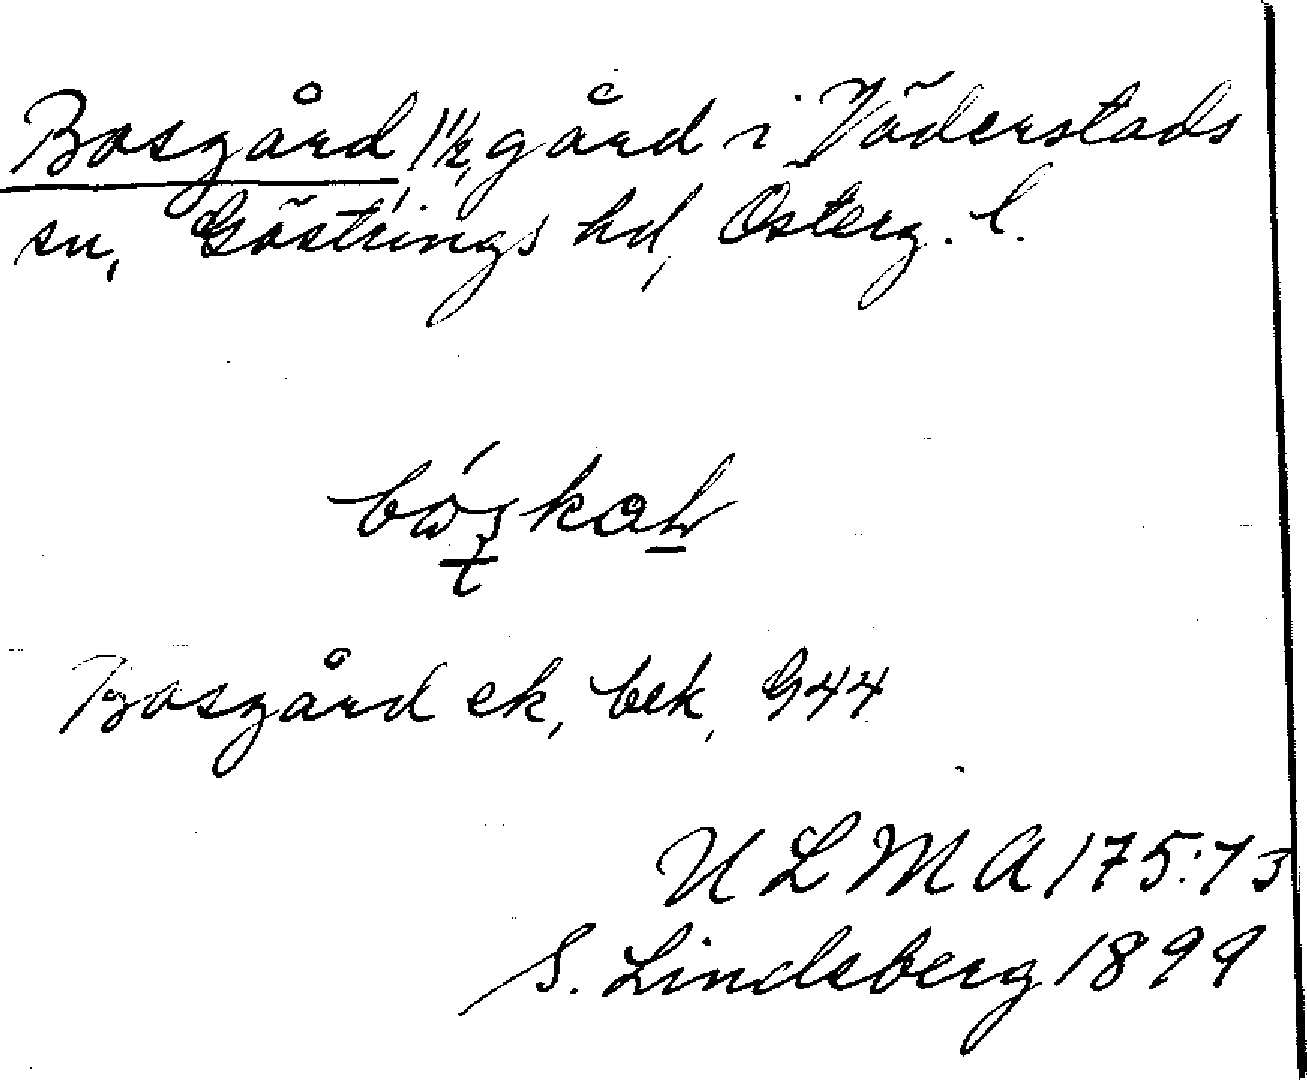 Bosgård, 1½ gård i Väderstads
sn, Göstrings hd, Österg. l.
Bosgård ek, bek, G44
ULMA 175:73
S. Lindsberg 1899